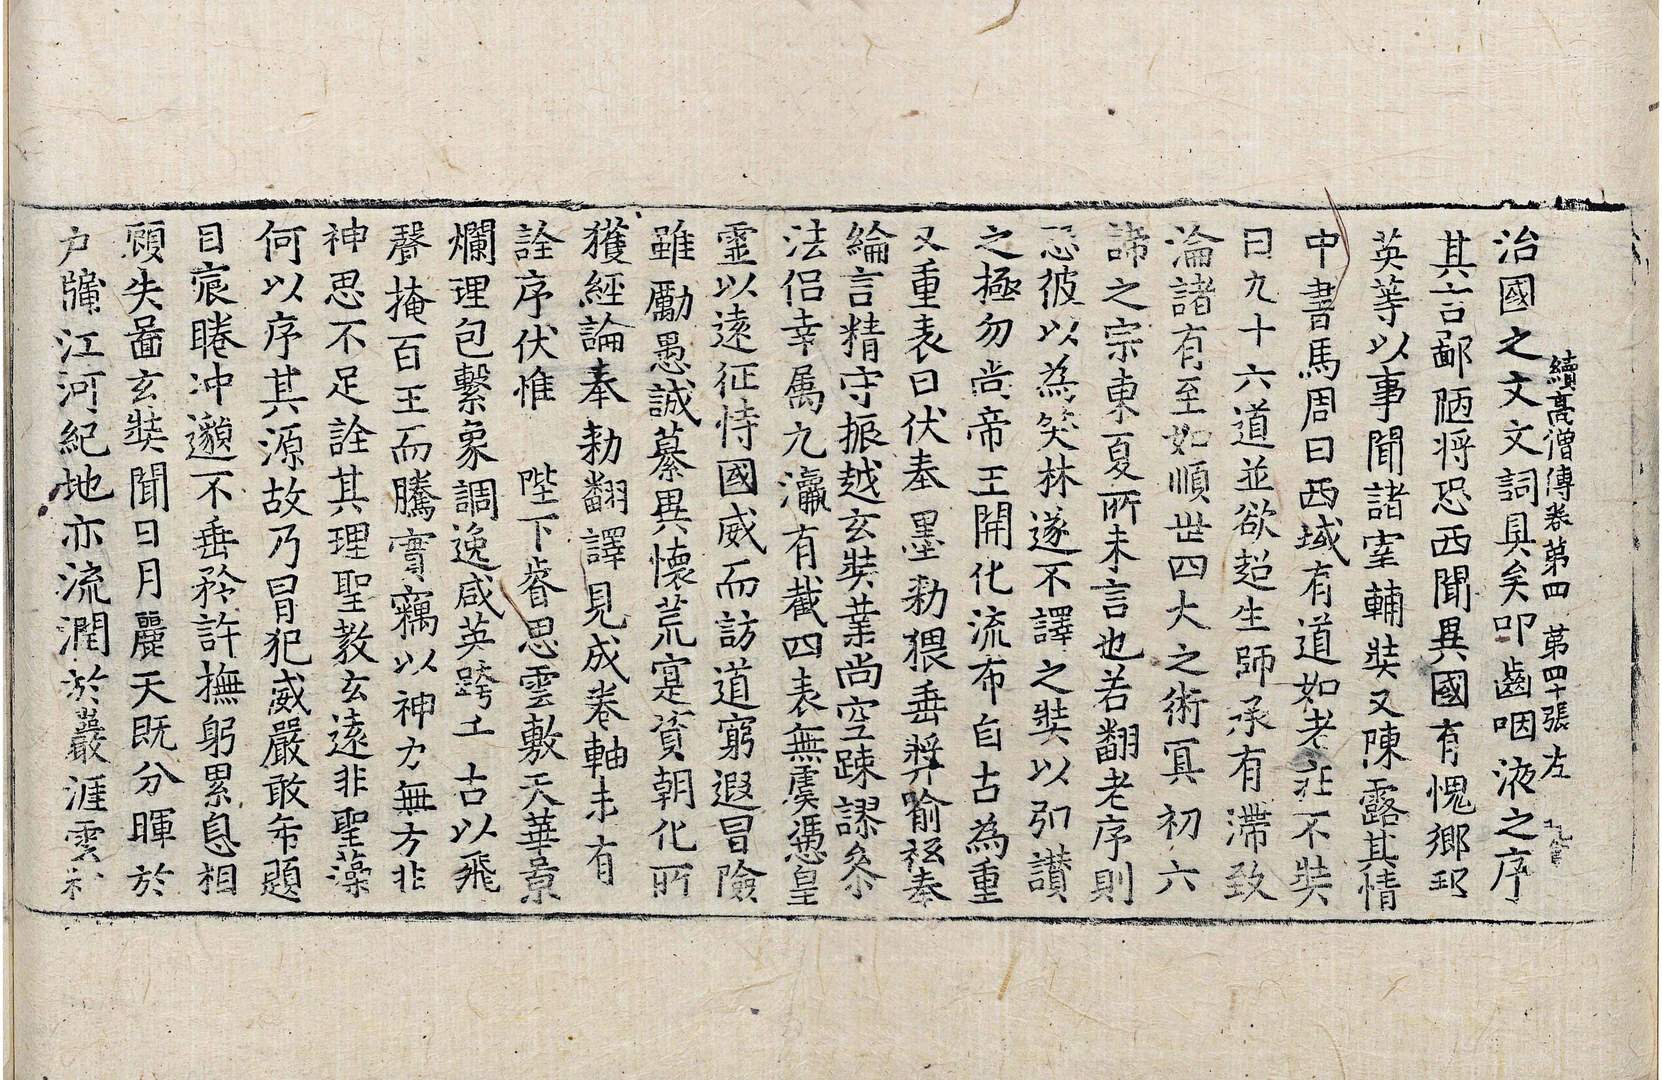 續高僧傳卷第四 第四十張 左
治國之文文詞具矣叩齒咽液之序
其言鄙陋將恐西聞異國有愧鄉邦
英等以事聞諸宰輔奘又陳露其情
中書馬周曰西域有道如老莊不奘
曰九十六道並欲超生師承有滯致
淪諸有至如順世四大之術冥初六
諦之宗東夏所未言也若翻老序則
恐彼以為笑林遂不譯之奘以弘讃
之極勿尚帝王開化流布自古為重
又重表曰伏奉墨勑猥垂奬喻祗奉
綸言精守振越玄奘業尚空疎謬叅
法侶幸屬九瀛有截四表無虞憑皇
靈以遠征恃國威而訪道窮遐冒險
雖勵愚誠纂異懷荒寔資朝化所
獲經論奉勑翻譯見成卷軸未有
詮序伏惟 陛下睿思雲敷天華景
爛理包繫象調逸咸英跨千古以飛
聲掩百王而騰實竊以神力無方非
神思不足詮其理聖教玄遠非聖藻
何以序其源故乃冒犯威嚴敢希題
目宸睠冲邈不垂矜許撫躬累息相
顧失啚玄奘聞日月麗天既分暉於
戶牖江河紀地亦流潤於巖涯雲和